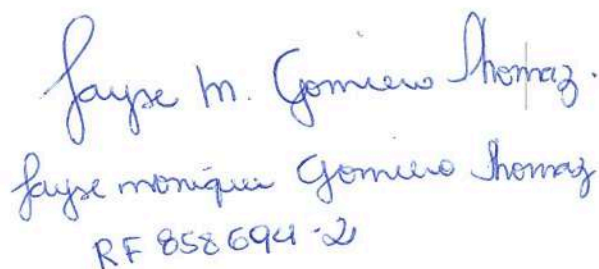 Jayse M. Gomiero Thomaz.
Jayse monique Gomiero Thomaz
RF 858694-2